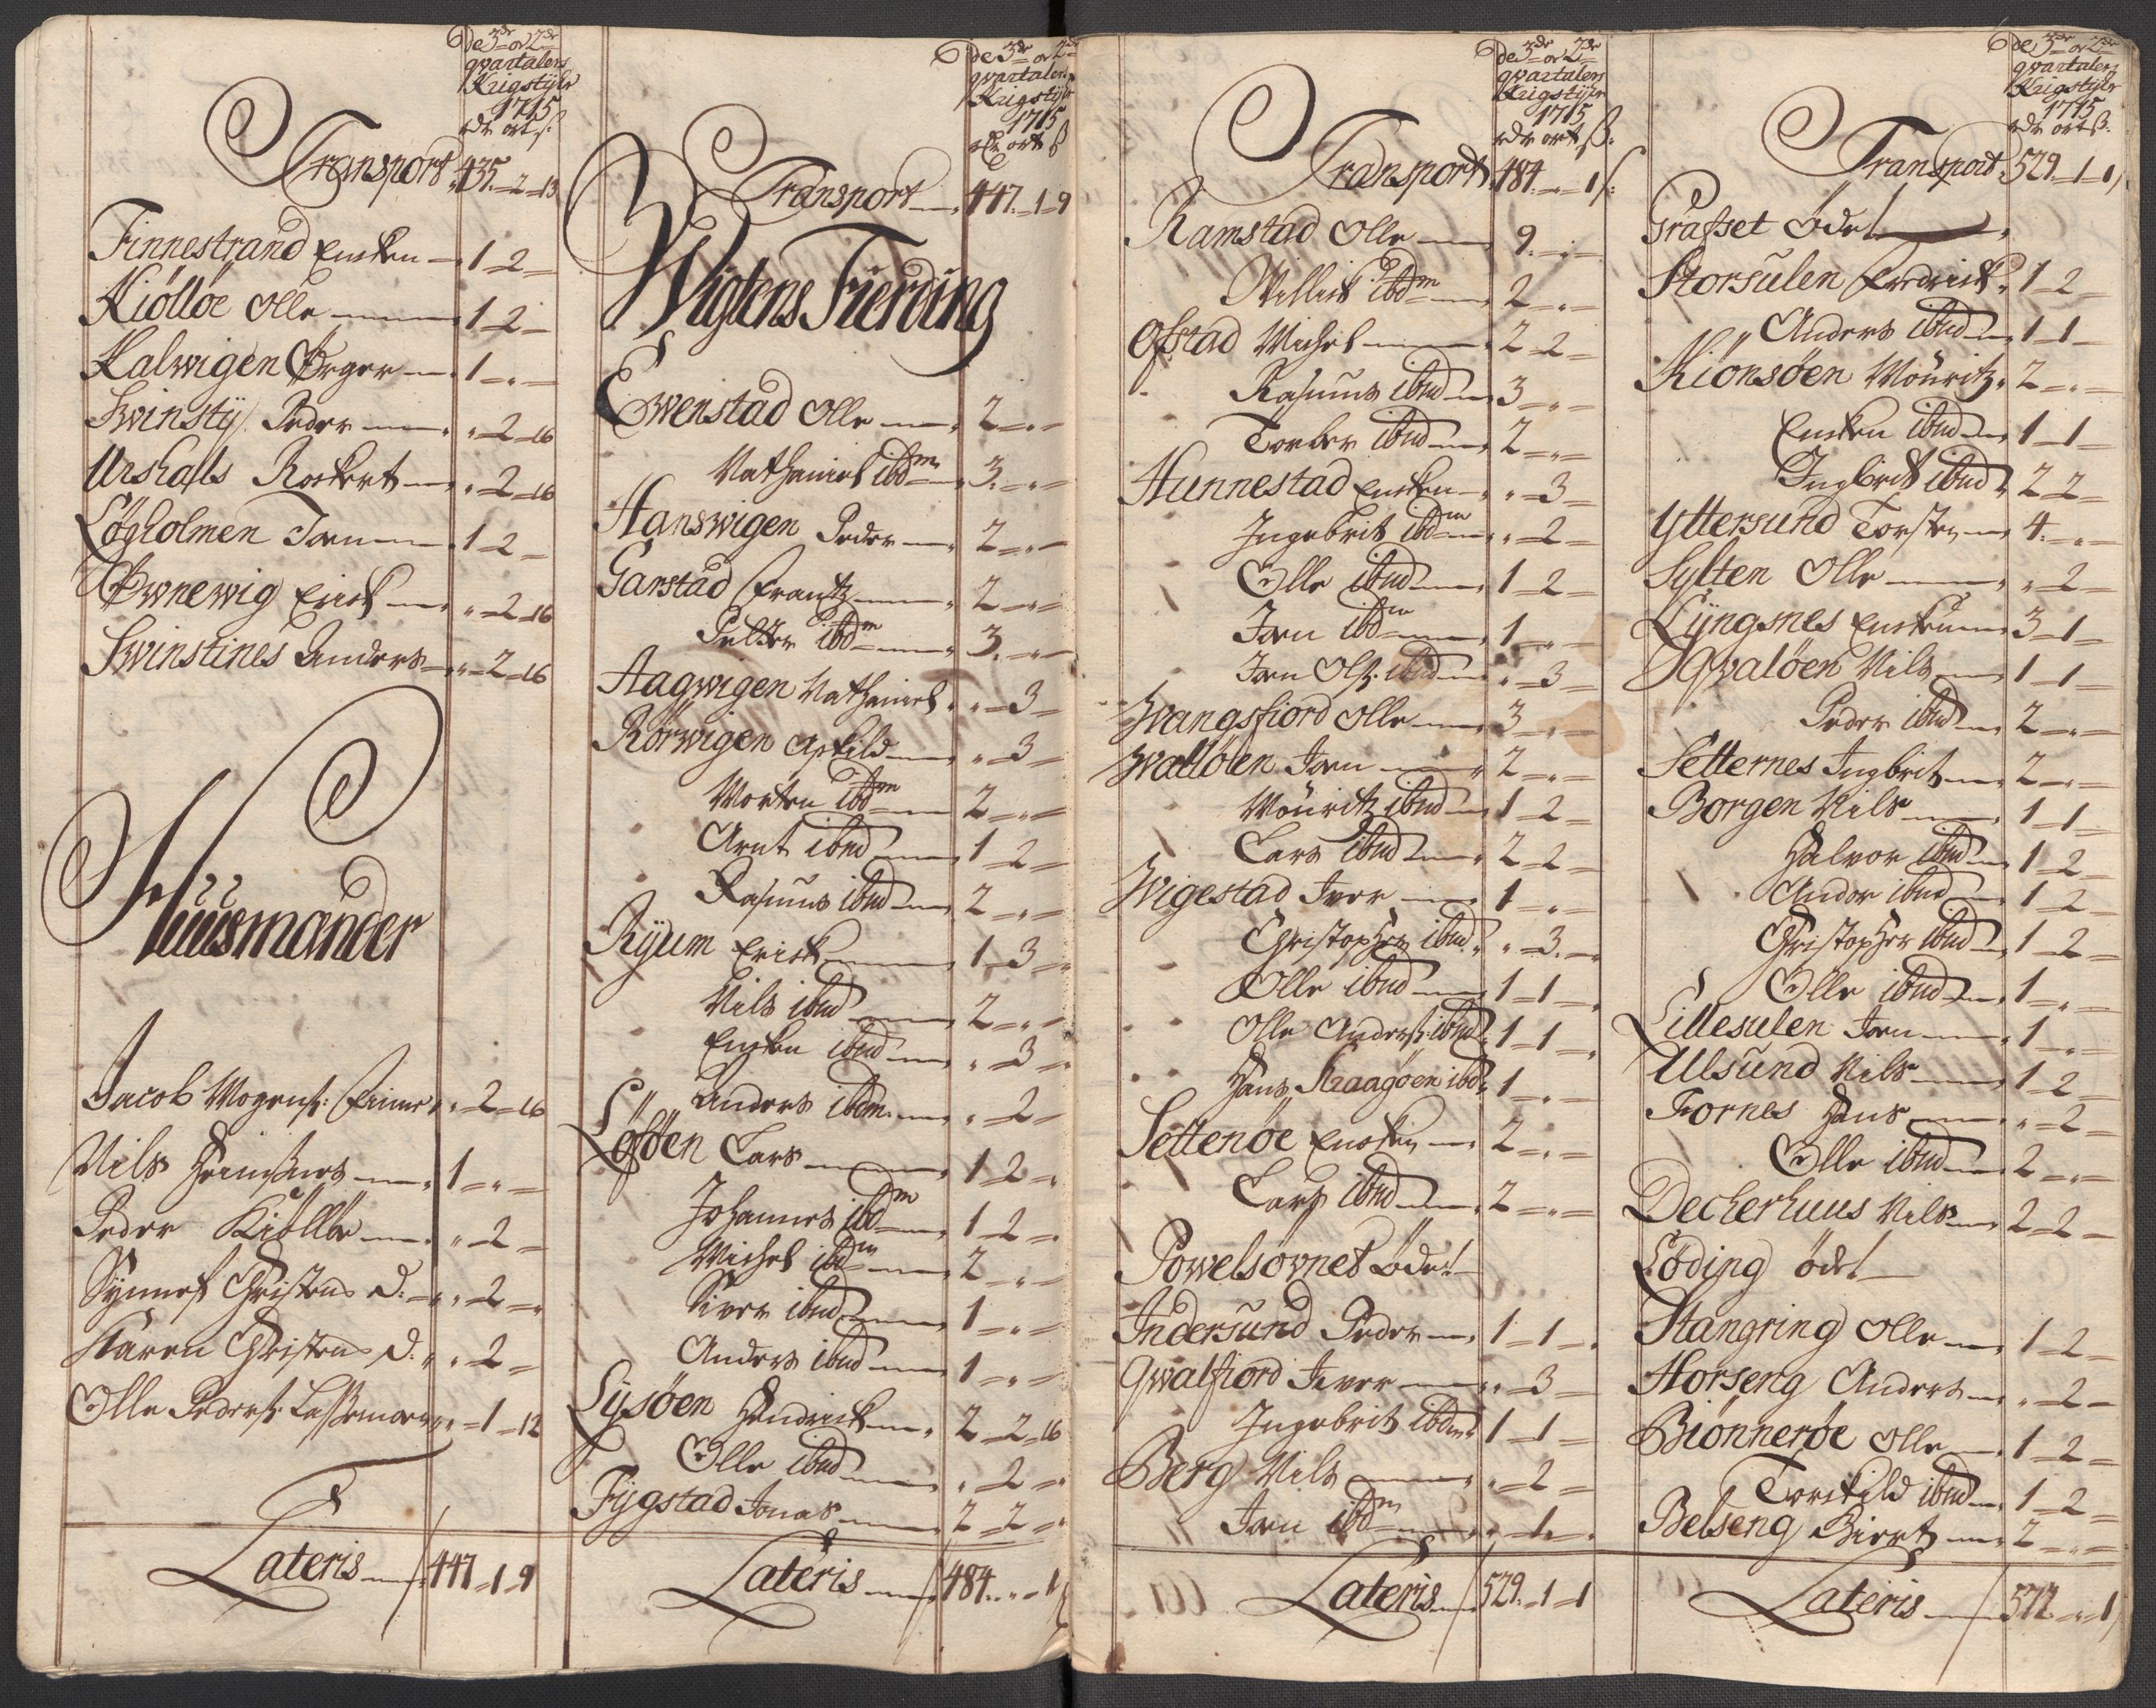 De 3de og 2de
qvartalers
Krigstÿr
1715
rdr ort ß
Transport 435 - 2 - 13
Finnestrand Ensken 1 - 2 -
Kiölløe Olle 1 - 2 -
Kalwigen Børger 1 - " -
Swinstÿ Peder " - 2 - 16
Urshals Rostert " - 2 - 16
Løgholmen Joen 1 - 2 -
Ewnewig Erick " - 2 - 16
Swinstines Anders " - 2 - 16
Huusmænder
Jacob Mogens: Finne " - 2 - 16
Nils 1 - " -
Peder Kiölløe " - 2 -
Synnef Christens D: " - 2 -
Karen Christens D: " - 2 -
Olle Peders: " - 1 - 12
Lateris 447 - 1 - 9
De 3de og 2de
qvartalers
Krigstÿr
1715
rdr ort ß
Transport 447 - 1 - 9
Wigtens Fierding
Ewenstad Olle 2 - " -
Nathaniel ibdm 3 - " -
Hanswigen Peder 2 - " -
Garstad Frantz 2 - " -
Pitter ibdm 3 - " -
Aagwigen Nathaniel " - 3 -
Rörwigen Askild " - 3 -
Morten ibdm 2 - " -
Arnt ibid 1 - 2 -
Rasmus ibid 2 - " -
Rÿum Erick 1 - 3 -
Nils ibid 2 - " -
Ensken ibid " - 3 -
Anders ibdm " - 2 -
Löföen Lars 1 - 2 -
Johannes ibdm 1 - 2 -
Michel ibdm 2 - " -
Siver ibid 1 - " -
Anders ibid 1 - " -
Lysöen Hendrick 2 - 2 - 16
Olle ibid " - 2 -
Fÿgstad Jonas 2 - 2 -
Lateris 484 - " - 1
De 3de og 2de
qvartalers
Krigstÿr
1715
rdr ort ß:
Transport 484 - " - 1
Ramstad Olle 9 - " -
Willick ibdm 2 - " -
Ofstad Michel 2 - 2 -
Rasmus ibid 3 - " -
Torber ibid 2 - " -
Hunnestad Ensken " - 3 -
Ingebrit ibdm " - 2 -
Olle ibid 1 - 2 -
Joen ibdm 1 - " -
Joen Ols: ibid " - 3 -
Wvangsfiord Olle 3 - " -
Wvallöen Joen 2 - " -
Mouritz ibid 1 - 2 -
Lars ibid 2 - 2 -
Wigestad Iver 1 - " -
Christopher ibid " - 3 -
Olle ibid 1 - 1 -
Olle Anders: ibid 1 - 1 -
Hans Kraagøen ibd 1 - " -
Settenöe Ensken 2 - " -
Lars ibid 2 - " -
Powelsovnet öde
Indersund Peder 1 - 1 -
Qwalfiord Iever " - 3 -
Ingebrit ibdm 1 - 1 -
Berg Nils " - 2 -
Joen ibdm " - 1 -
Lateris 529 - 1 - 1
De 3de og 2de
qvartalers
Krigstÿr
1715
rdr ort ß:
Transport 529 - 1 - 1
Grasset Ödet
Storsulen Fredrick 1 - 2 -
Anders ibid 1 - 1 -
Kiönsöen Mouritz 2 - " -
Ensken ibid 1 - 1 -
Ingbrit ibid 2 - 2 -
Yttersund Torsten 4 - " -
Sylten Olle " - 2 -
Lÿngsnes Ensken 3 - 1 -
Qvalöen Nils 1 - 1 -
Peder ibid 2 - " -
Setternes Ingbrit 2 - " -
Borgen Nils 1 - 1 -
Halvor ibid 1 - 2 -
Andor ibid 1 - 2 -
Christopher ibid 1 - 2 -
Olle ibid 1 - " -
Lillesulen Joen 1 - " -
Ulsund Nils 1 - 2 -
Fornes Hans " - 2 -
Olle ibid 2 - " -
Decherhuus Nils 2 - 2 -
Löding ödet
Stangring Olle 1 - 2 -
Horseng Anders " - 2 -
Biönneröe Olle 1 - 2 -
Torckild ibid 1 - 2 -
Belseng Biert 2 - " -
Lateris 572 - " - 1